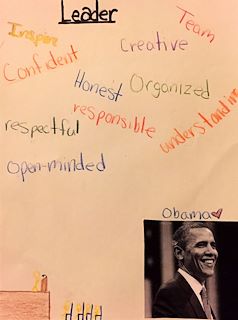 Leader
Team
Inspire
Creative
Confident
Honest Organized
responsible
respectful
understanding
Open-minded
Obama